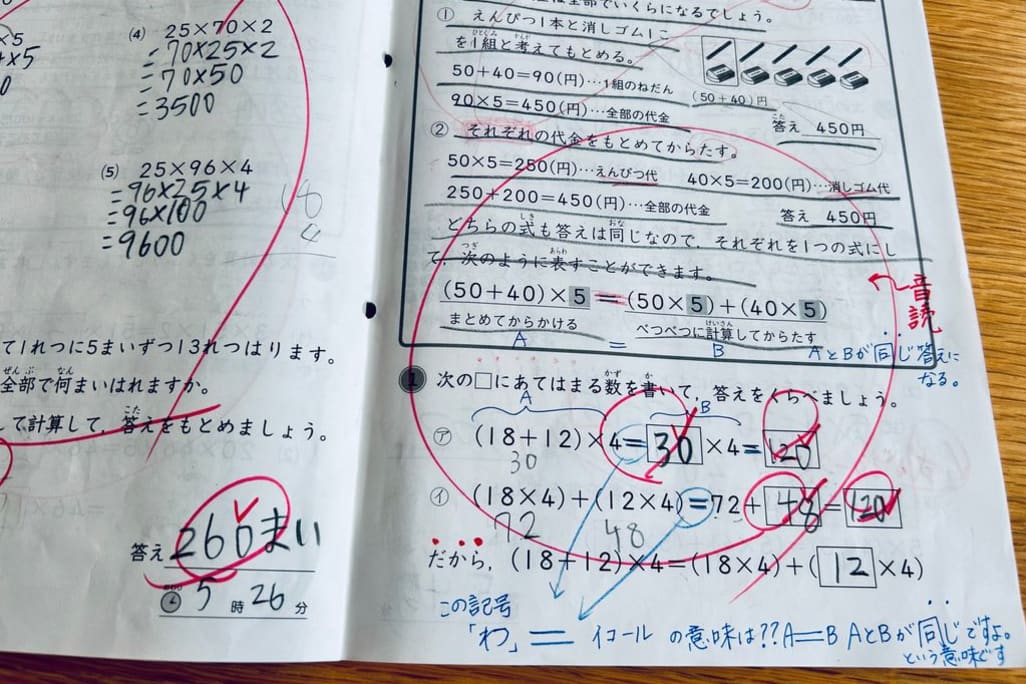 ×5
×5
0
(4) 25×70×2
=70×25×2
=70×50
=3500
(5) 25×96×4
=96×25×4
=96×100
=9600
18
4
て1れつに5まいずつ13れつはります。
全部で何まいはれますか。
して計算して，答えをもとめましょう。
答え 260まい
5時26分
全部でいくらになるでしょう。
① えんぴつ1本と消しゴム1こ
を1組と考えてもとめる。
50+40=90(円)…1組のねだん
90×5=450(円)…全部の代金
(50+40)円
答え 450円
② それぞれの代金をもとめてからたす。
50×5=250(円)…えんぴつ代 40×5=200(円)…消しゴム代
250+200=450(円)…全部の代金 答え 450円
どちらの式も答えは同じなので，それぞれを1つの式にし
て，次のように表すことができます。
(50+40)×5=(50×5)+(40×5)
まとめてからかける べつべつに計算してからたす
A = B
音読
AとBが同じ答えに
なる。
1 次の□にあてはまる数を書いて，答えをくらべましょう。
A B
㋐ (18+12)×4=30×4=120
30
㋑ (18×4)+(12×4)=72+48=120
72 48
だから，(18+12)×4=(18×4)+(12×4)
この記号
「わ」 = イコール の意味は??A=B AとBが同じですよ。
という意味です